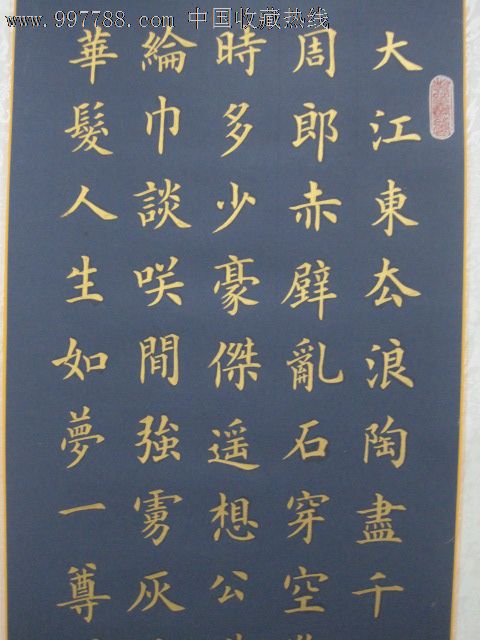 www.997788.com 中国收藏热线
大江東厺浪陶盡千
周郎赤壁亂石穿空
時多少豪傑遥想公
綸巾談咲間強虜灰
華髮人生如夢一尊